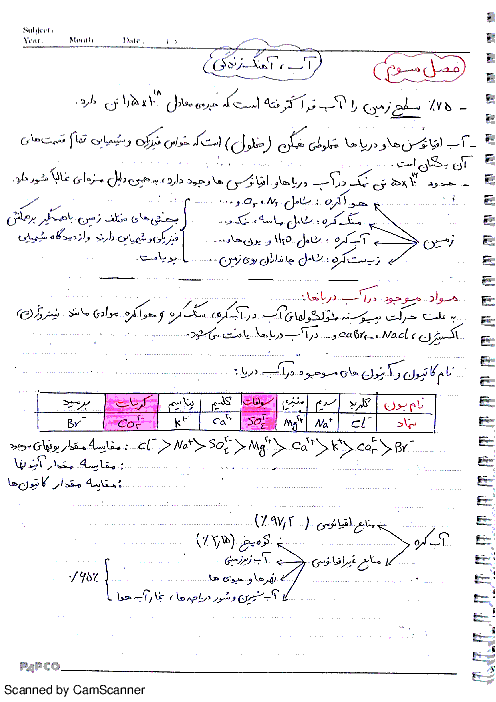 Subject:
Year. Month. Date. ( )
آب، آهنگ زندگی
فصل سوم
- ۷۵٪ سطح زمین را آب فرا گرفته است که جرمی معادل ۱/۵×۱۰^۱۸ تن دارد.
- آب اقیانوس‌ها و دریاها مخلوطی همگن (محلول) است که خواص فیزیکی و شیمیایی تمام قسمت‌های
آن یکسان است.
- حدود ۵×۱۰^۱۶ تن نمک در آب دریاها و اقیانوس‌ها وجود دارد، به همین دلیل مزه‌ای غالباً شور دارد.
زمین
هواکره: شامل N₂، O₂ و...
سنگ‌کره: شامل ماسه، نمک و...
آب‌کره: شامل H₂O و یون‌ها و...
زیست‌کره: شامل جانداران روی زمین
بخش‌های مختلف زمین با همدیگر برهمکنش
فیزیکی و شیمیایی دارند و از دیدگاه شیمیایی
پویاست.
مواد موجود در آب دریاها:
به علت حرکت پیوسته مولکول‌های آب در آب‌کره، سنگ‌کره و هواکره موادی مانند نیتروژن،
اکسیژن، NaCl، CaBr₂ و... در آب دریاها یافت می‌شود.
نام کاتیون و آنیون های موجود در آب دریا:
نام یون کلرید سدیم منیزیم سولفات کلسیم پتاسیم کربنات برمید
نماد Cl⁻ Na⁺ Mg²⁺ SO₄²⁻ Ca²⁺ K⁺ CO₃²⁻ Br⁻
مقایسه مقدار یونهای موجود: Cl⁻ > Na⁺ > SO₄²⁻ > Mg²⁺ > Ca²⁺ > K⁺ > CO₃²⁻ > Br⁻
مقایسه مقدار آنیونها:
مقایسه مقدار کاتیون‌ها:
آب کره
منابع اقیانوسی (۹۷,۲٪)
منابع غیراقیانوسی
کوه یخ (۲,۱۵٪)
آب زیرزمینی
نهرها و جوی ها
آب شیرین و شور دریاچه‌ها، بخار آب هوا
۰/۶۵٪
PAPCO
Scanned by CamScanner